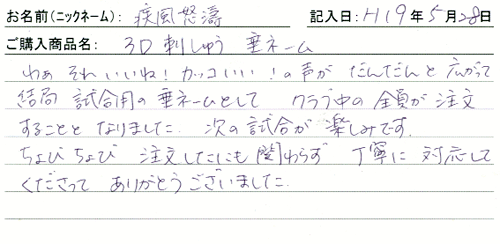 お名前(ニックネーム): 疾風怒濤 記入日: H19年5月28日
ご購入商品名: 3D刺しゅう 垂ネーム
わぁ それいいね! カッコいい! の声が だんだんと 広がって
結局 試合用の垂ネームとして クラブ中の 全員が 注文
することと なりました. 次の試合が 楽しみです.
ちょび ちょび 注文したにも 関わらず 丁寧に 対応して
くださって ありがとう ございました.